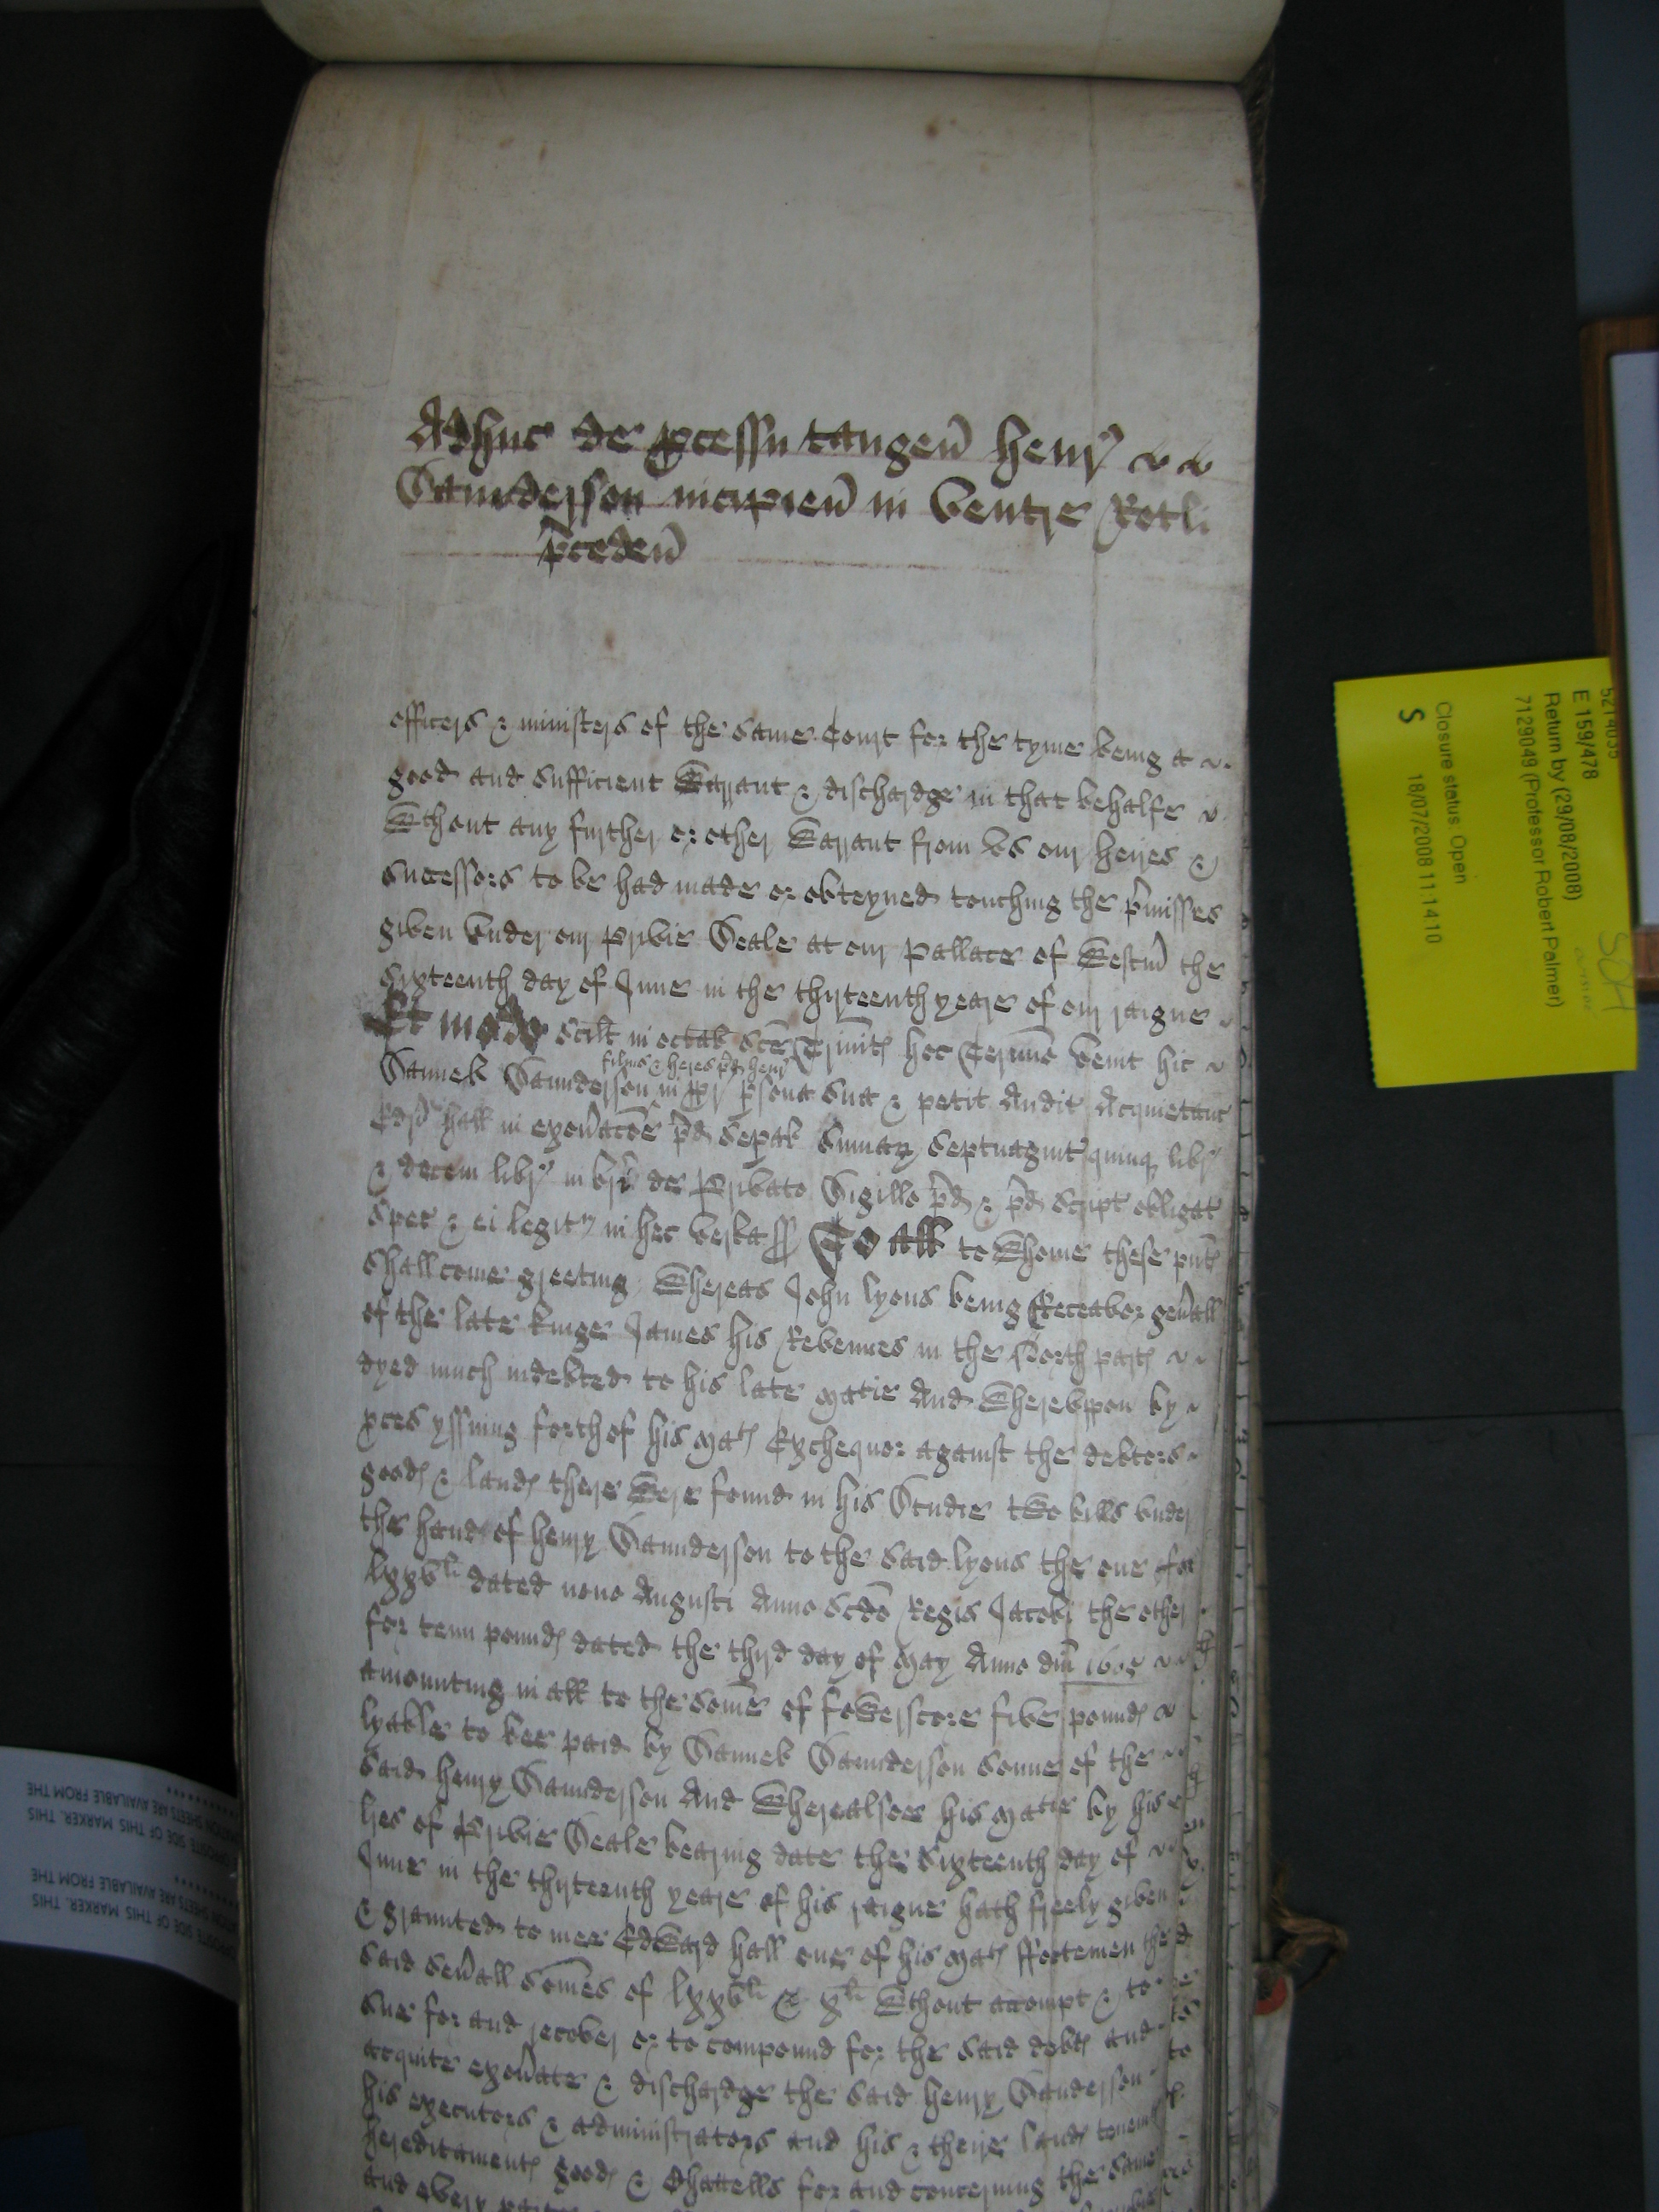 Adhuc de pcessu tangen Henr
Saunderson incipien in ventre Rotli
pceden
officers & ministers of the same Court for the tyme being a
good and sufficient Warrant & dischardge in that behalfe
Wthout any further or other Warrant from vs our heires &
successors to be had made or obteyned touching the pmisses
given vnder our privie Seale at our Pallace of Westm the
sixteenth day of June in the thirteenth yeare of our raigne
Et modo scilt in octab sce Trinit hoc Termino venit hic
filius & heres pd Henr
Samuel Saunderson in ppr psona sua & petit Audit Acquietanc
Edri Hall in exonacoe pd sepal summar septuagint quinq libr
& decem libr in bri de Privato Sigillo pd & pd script obligat
spec & ei legit in hec verba ss To all to Whome these pnts
shall come greeting Whereas John Lyons being Receavor genall
of the late Kinge James his Revenues in the North parts
dyed much indebted to his late Matie And Wherevppon by
pces yssuing forth of his Mats Exchequor against the debtors
goods & lands there Were found in his Studie tWo bills vnder
the hand of Henry Saunderson to the said Lyons the one for
lxxvli dated nono Augusti Anno scdo Regis Jacobi the other
for tenn pounds dated the third day of May Anno dni 1605
amounting in all to the some of foWerscore five pounds
lyable to bee paid by Samuel Saunderson sonne of the
said Henry Saunderson And Wherealsoe his Matie by his
lres of Privie Seale bearing date the Sixteenth day of
June in the thirteenth yeare of his raigne hath freely given
& graunted to mee EdWard Hall one of his Mats ffootemen the
said sevall somes of lxxvli & xli Wthout accompt & to
sue for and recover or to compound for the said debts and
acquite exonate & dischardge the said Henry Saunderson
his executors & administrators and his & theire lands tenemts
hereditaments goods & Chattells for and concerning the same
and every parte
5214035
E 159/478
Return by (29/08/2008)
7129049 (Professor Robert Palmer)
Closure status: Open
18/07/2008 11:14:10
S
SOH
OPPOSITE SIDE OF THIS MARKER. THIS
SHEETS ARE AVAILABLE FROM THE
OPPOSITE SIDE OF THIS MARKER. THIS
SHEETS ARE AVAILABLE FROM THE